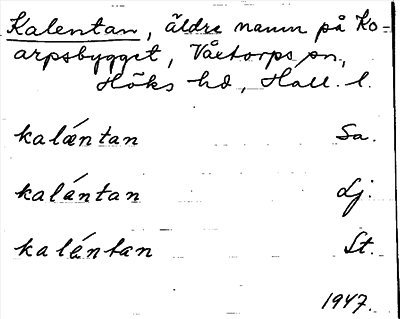 Kalentan, äldre namn på Ko-
arpsbygget, Våxtorps sn,
Höks hd, Hall. l.
kalǽntan Sa.
kaléntan Lj.
kaléntan St.
1947.